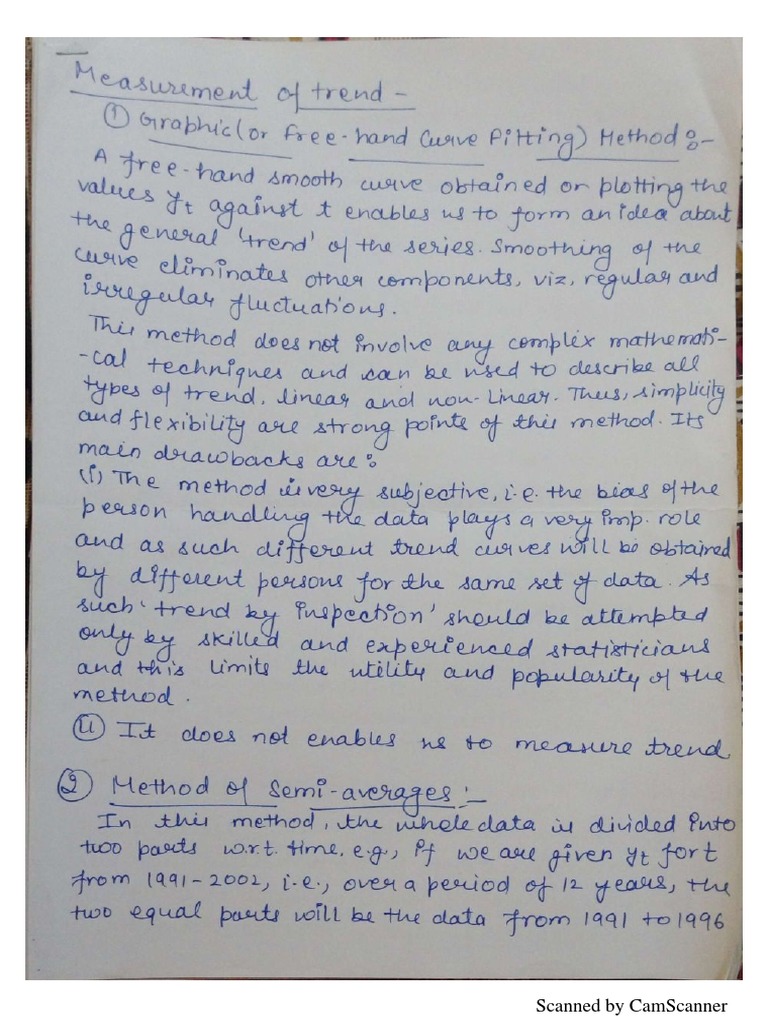 Measurement of trend -
① Graphic (or free-hand Curve Fitting) Method :-
A free-hand smooth curve obtained or plotting the
values yt against t enables us to form an idea about
the general 'trend' of the series. Smoothing of the
curve eliminates other components, viz, regular and
irregular fluctuations.
This method does not involve any complex mathemati-
-cal techniques and can be used to describe all
types of trend, linear and non-linear. Thus, simplicity
and flexibility are strong points of this method. Its
main drawbacks are :
(i) The method is very subjective, i.e. the bias of the
person handling the data plays a very imp. role
and as such different trend curves will be obtained
by different persons for the same set of data. As
such 'trend by inspection' should be attempted
only by skilled and experienced statisticians
and this limits the utility and popularity of the
method.
(ii) It does not enables us to measure trend
② Method of Semi-averages :-
In this method, the whole data is divided into
two parts w.r.t. time, e.g., if we are given yt for t
from 1991-2002, i.e., over a period of 12 years, the
two equal parts will be the data from 1991 to 1996
Scanned by CamScanner